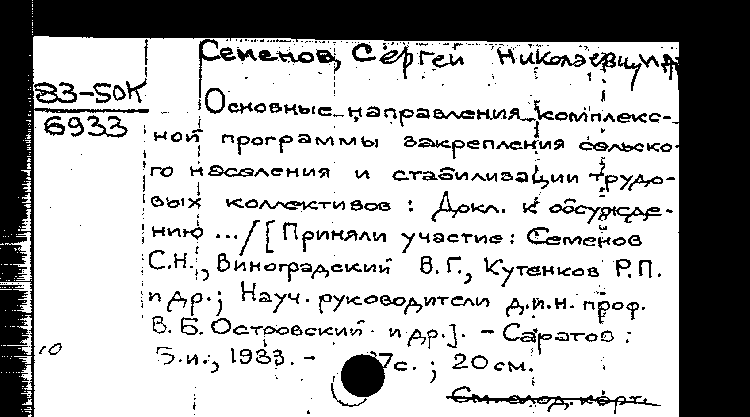 Семенов, Сергей Николаевич и др
83-50К
6933
Основные направления комплекс-
ной программы закрепления сельско-
го населения и стабилизации трудо-
вых коллективов : Докл. к обсужде-
нию ... / [ Приняли участие: Семенов
С.Н., Виноградский В.Г., Кутенков Р.П.
и др.; Науч. руководители д.и.н. проф.
В.Б. Островский и др.]. - Саратов :
Б.и., 1983. - 7с. ; 20 см.
10
См. след. карт.